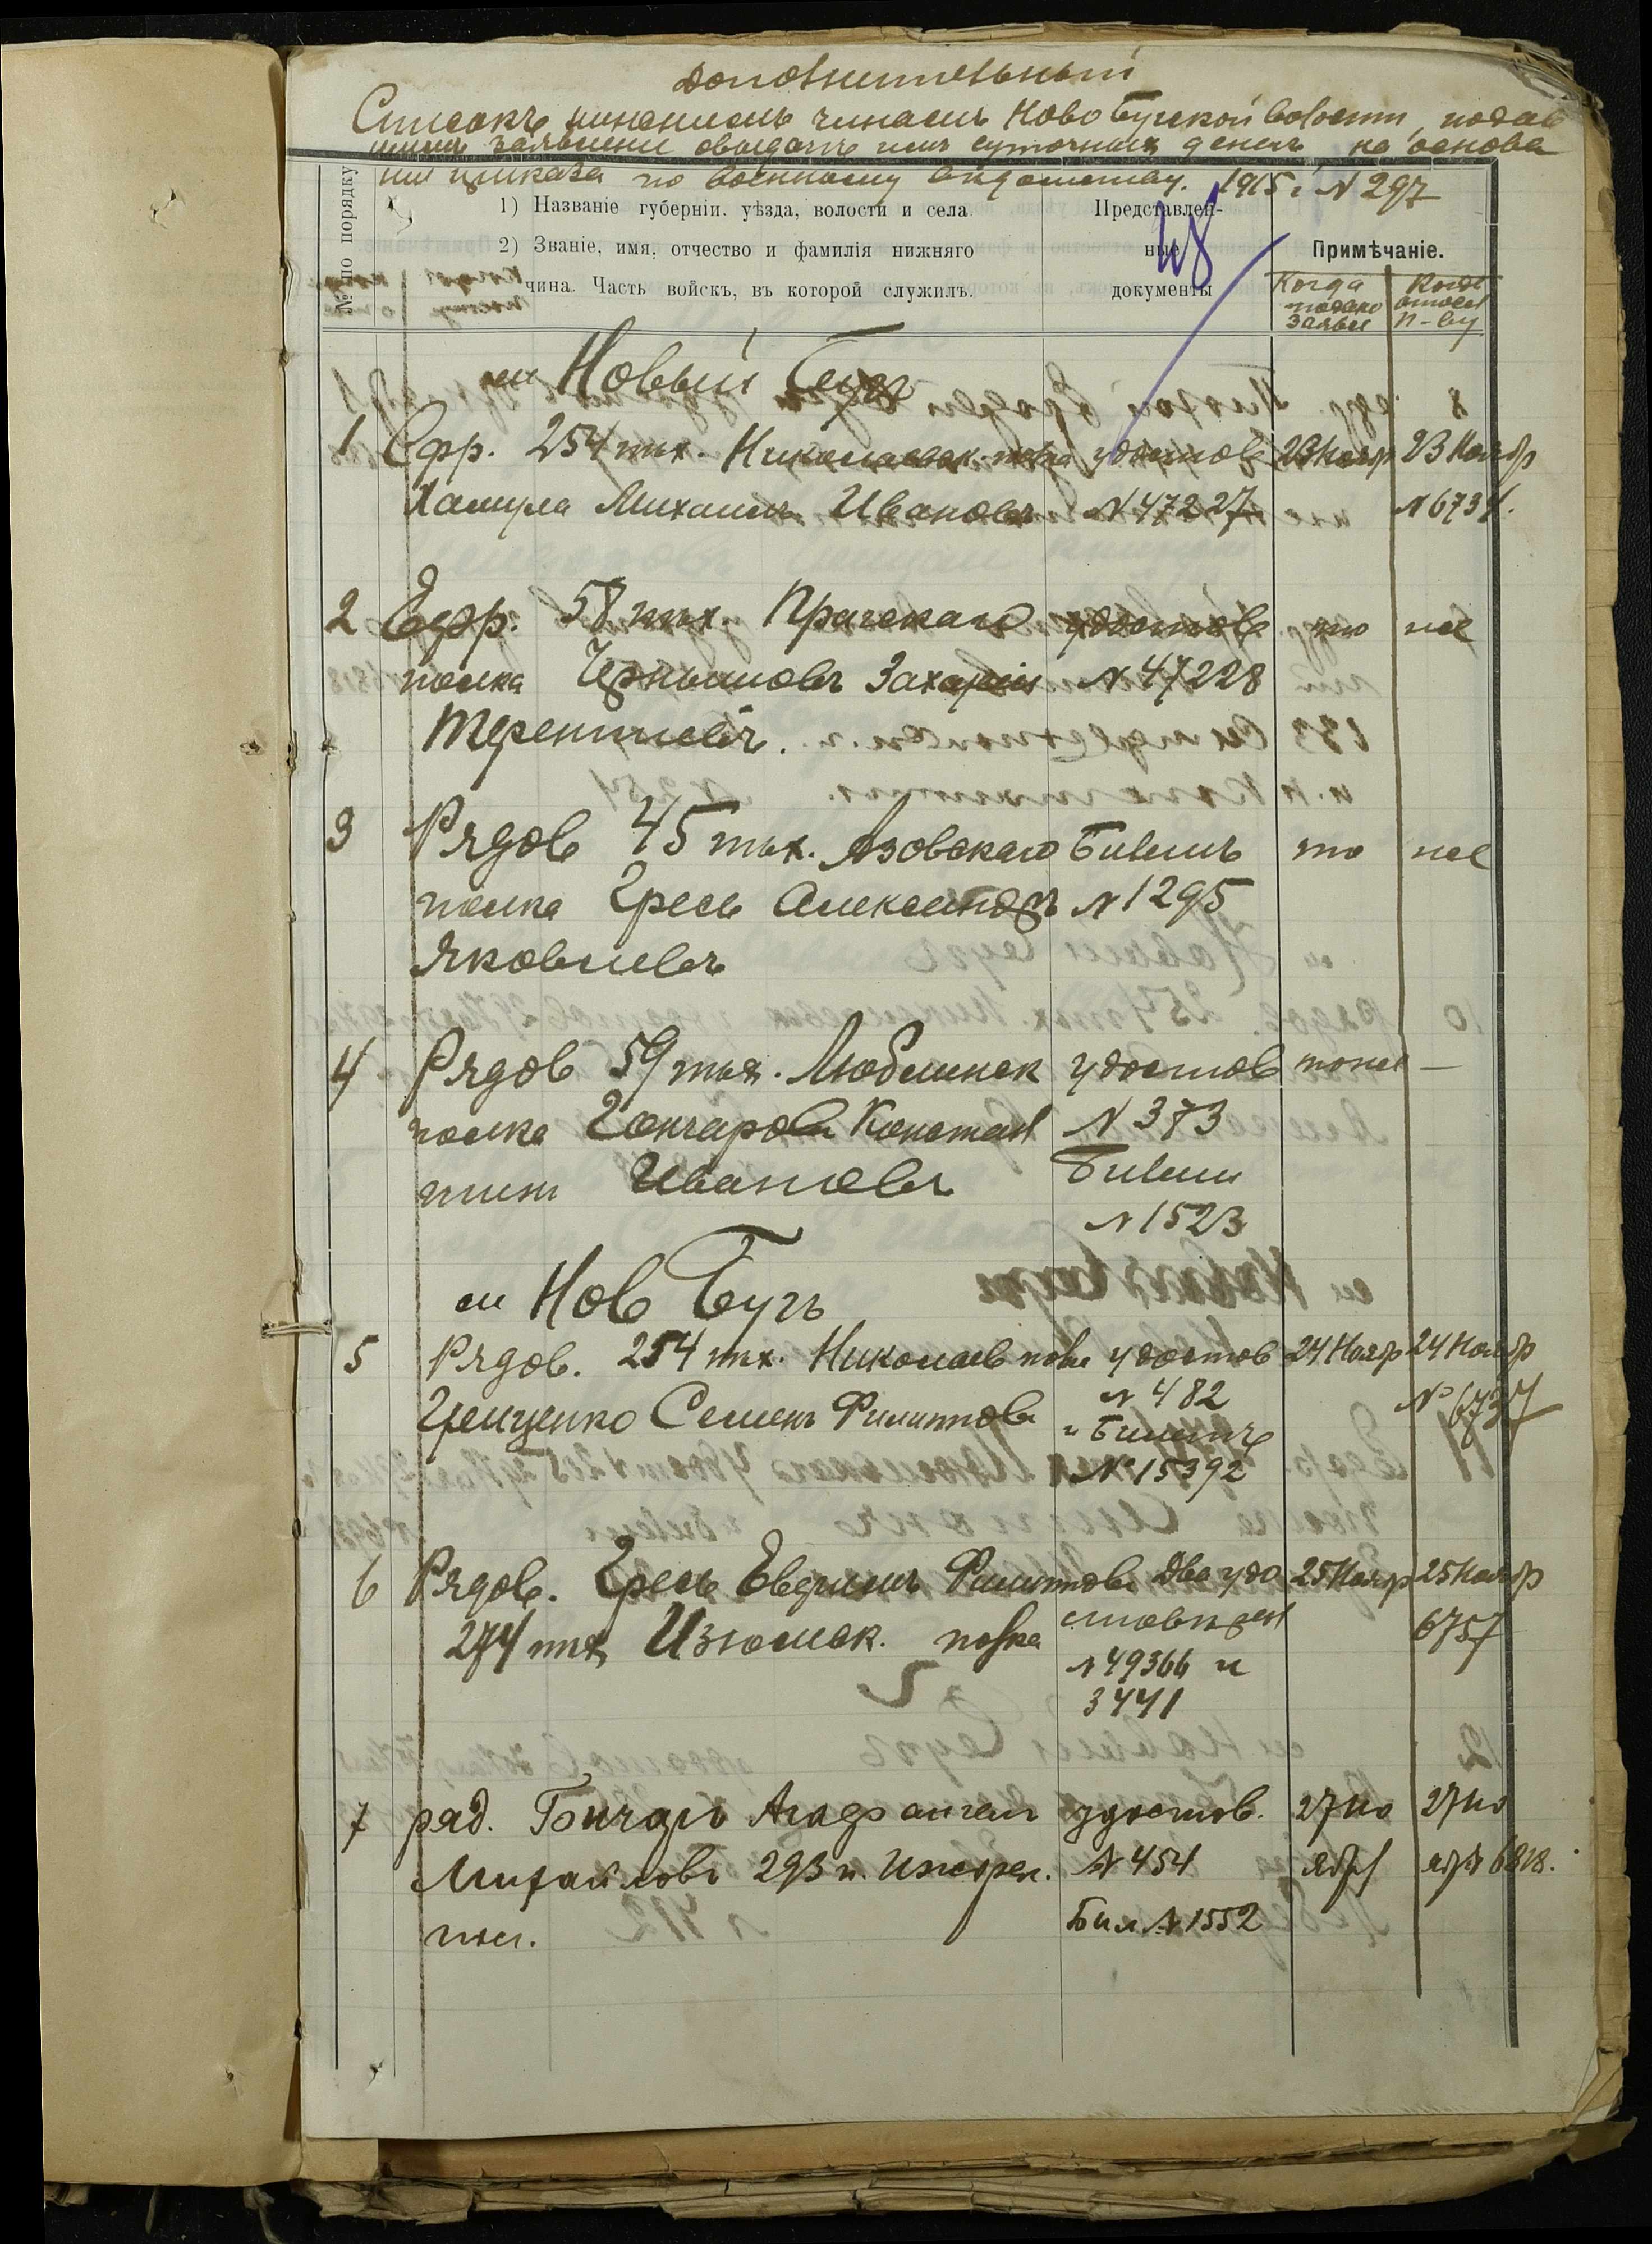 дополнительный
Списокъ нижнимъ чинамъ Новобугской волости, подав
шимъ заявлени овыдачи имъ суточныхъ денегъ на основа
нии приказа по военному ведомству. 1915 г. № 297
№ по порядку
1) Названіе губерніи, уѣзда, волости и села
2) Званіе, имя, отчество и фамилія нижняго
чина. Часть войскъ, въ которой служилъ.
Представлен-
ные
документы
48
Примѣчаніе.
Когда
подано
заявл
Когда
отосл
П-ву
м Новый Бугъ
1 Ефр. 254 пѣх. Николаевск. полка удостов 23 Нояр 23 Ноябр
Михаилъ Ивановъ № 47227 № 6731.
2 Ефр. 58 пѣх. Пражскаго удостов то же
полка Захарій № 47228
Терентіевъ.
3 Рядов 45 пѣх. Азовскаго Билетъ то же
полка Гресь Александръ № 1295
Яковлевъ
4 Рядов 59 пѣх. Люблинск удостов тоже —
полка Гончаровъ Констан № 373
тинъ Ивановъ Билет
№ 1523
м Нов Бугъ
5 Рядов. 254 пѣх. Николаев полк удостов 24 Ноябр 24 Ноябр
Семенъ Филиппов № 482 № 6737
и Билетъ
№ 15392
6 Рядов. Гресь Филиппов Два удо 25 Ноябр 25 Ноябр
274 пѣх Изюмск. полка стоверен 6757
№ 49366 и
3441
7 ряд. Агафангел удостов. 27 но 27 но
Михайловъ 293 п. Ижорск. № 454 ября ября 6818.
пол. Бил № 1552